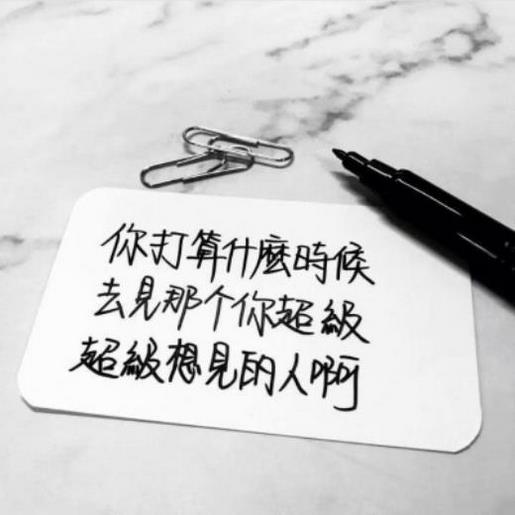 你打算什麼時候
去見那个你超級
超級想見的人啊